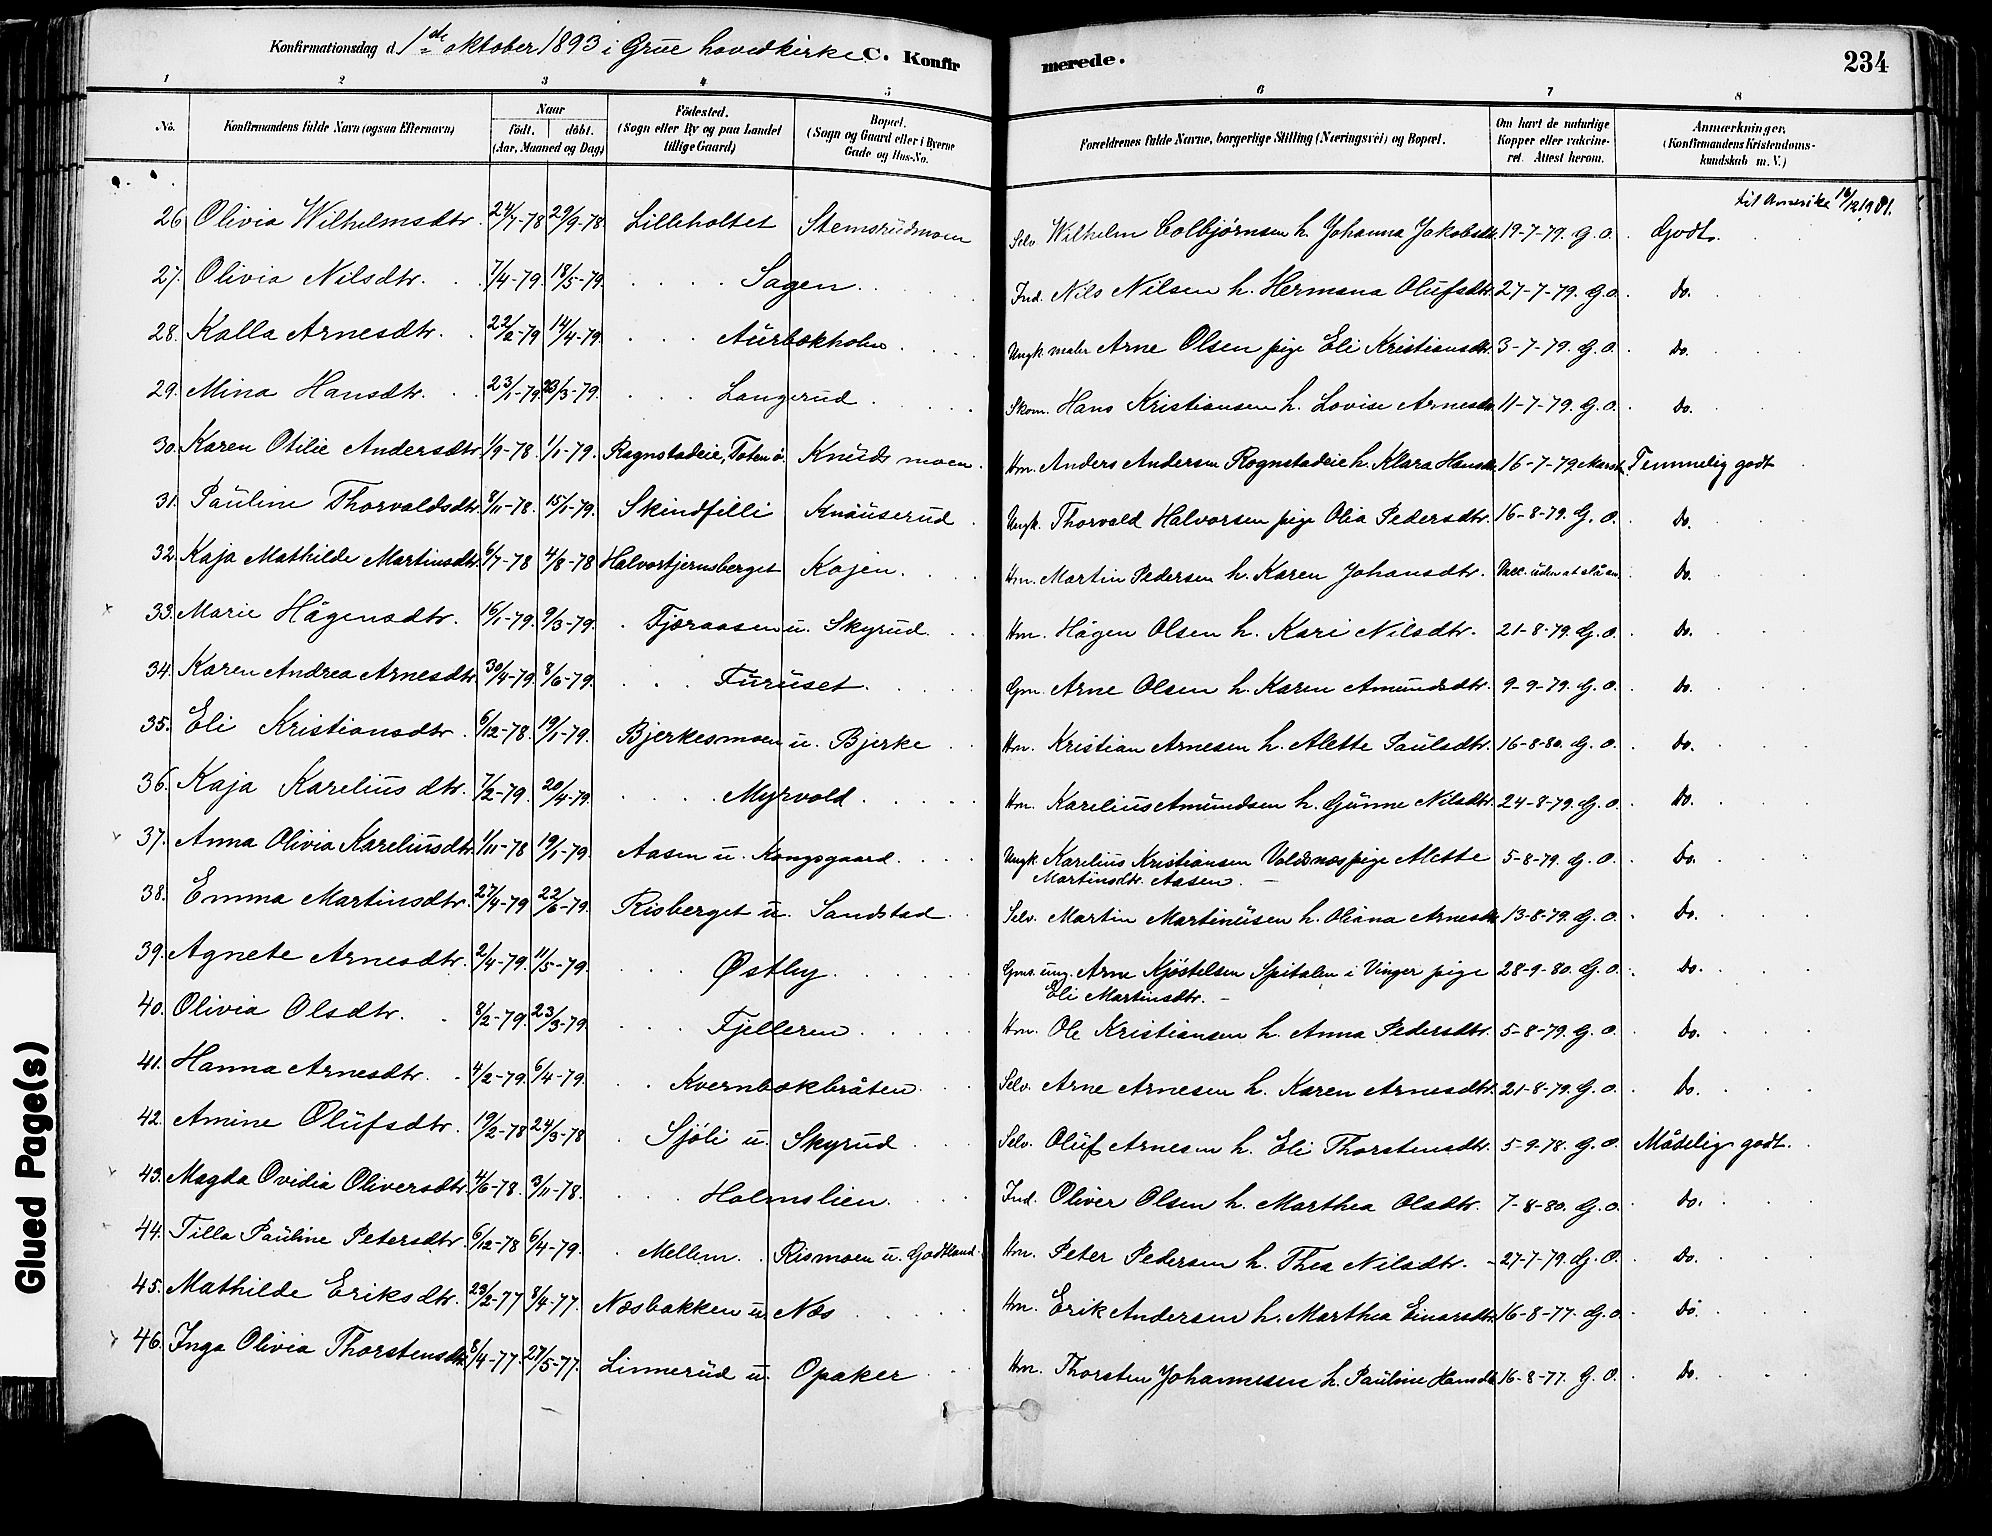 Konfirmationsdag d. 1ste oktober 1893 i Grue hovedkirke C. Konfir merede. 234
1 2 3 4 5 6 7 8
No. Konfirmandens fulde Navn (ogsaa Efternavn) Naar födt. döbt. (Aar, Maaned og Dag) Födested. (Sogn eller By og paa Landet tillige Gaard) Bopæl. (Sogn og Gaard eller i Byerne Gade og Hus-No. Forældrenes fulde Navne, borgerlige Stilling (Næringsvei) og Bopæl. Om havt de naturlige Kopper eller vakcineret. Attest herom. Anmærkninger. (Konfirmandens Kristendomskundskab m. V.)
til Amerika
26 Olivia Wilhelmsdtr. 24/7-78 29/9-78. Lilleholtet Stemsrudmoen Selv. Wilhelm Colbjørnsen h. Johanna Jakobsdtr. 19-7-79. G.O. Godt.
27. Olivia Nilsdtr. 7/4-79. 18/5-79. Sagen. Ind. Nils Nilsen h. Hermana Olufsdtr. 27-7-79. G.O. Do.
28. Kalla Arnesdtr. 22/2-79 14/4-79. Aurbækholm. Ungk. maler Arne Olsen pige Eli Kristiansdtr. 3-7-79. G.O. Do.
29. Mina Hansdtr. 23/1-79. 23/3-79. Langerud. Skom. Hans Kristiansen h. Lovise Arnesdtr. 11-7-79. G.O. Do.
30. Karen Otilie Andersdtr. 1/9-78. 1/1-79. Rognstadeie, Toten ö. Knuds moen. Hm. Anders Andersen Rognstadeie h. Klara Hansdtr. 16-7-79. Temmelig godt
31. Pauline Thorvaldsdtr. 8/11-78. 15/1-79. Skindfilli Knauserud. Ungk. Thorvald Halvorsen pige Olia Pedersdtr. 16-8-79. G.O. Do.
32. Kaja Mathilde Martinsdtr. 6/7-78 4/8-78 Halvortjernsberget Kajen. Hm. Martin Pedersen h. Karen Johansdtr. Vacc. uden at slå an. Do.
33. Marie Hågensdtr. 16/1-79. 9/3-79. Fjæraasen u. Skyrud. Hm. Hågen Olsen h. Kari Nilsdtr. 21-8-79. G.O. Do.
34. Karen Andrea Arnesdtr. 30/4-79. 8/6-79. Furuset. Gm. Arne Olsen h. Karen Amundsdtr. 9-9-79. G.O. Do.
35. Eli Kristiansdtr. 6/12-78. 19/1-79. Bjerkesmoen u. Bjerke Hm. Kristian Arnesen h. Alette Paulsdtr. 16-8-80. G.O. Do.
36. Kaja Karelius dtr. 7/2-79. 20/4-79. Myrvold. Hm. Karelius Amundsen h. Gunne Nilsdtr. 24-8-79. G.O. Do.
37. Anna Olivia Kareliusdtr. 1/11-78 19/1-79. Aasen u. Kongsgaard. Ungk. Karelius Kristiansen Voldsnæs pige Alette 5-8-79. G.O. Do.
Martinsdtr. Aasen.
38. Emma Martinsdtr. 27/4-79 22/6-79. Risberget u. Sandstad. Selv. Martin Martinusen h. Oliana Arnesdtr. 13-8-79. G.O. Do.
39. Agnete Arnesdtr. 2/4-79. 11/5-79. Østby. Gms. ung. Arne Kjøstelsen Spitalen i Vinger pige 28-9-80. G.O. Do.
Eli Martinsdtr.
40. Olivia Olsdtr. 8/2-79. 23/3-79. Fjelleren. Hm. Ole Kristiansen h. Anna Pedersdtr. 5-8-79. G.O. Do.
41. Hanna Arnesdtr. 4/2-79 6/4-79. Kvernbækbråten. Selv. Arne Arnesen h. Karen Arnesdtr. 21-8-79. G.O. Do.
42. Amine Olufsdtr. 19/2-78 24/3-78 Sjöli u. Skyrud. Selv. Oluf Arnesen h. Eli Thorstensdtr. 5-9-78. G.O. Mådelig godt.
43. Magda Ovidia Oliversdtr. 4/6-78. 3/11-78. Holmslien. Ind. Oliver Olsen h. Marthea Olsdtr. 7-8-80. G.O. Do.
44. Tilla Pauline Petersdtr. 6/12-78 6/4-79. Mellem. Rismoen u. Godtland. Hm. Peter Pedersen h. Thea Nilsdtr. 27-7-79. G.O. Do.
45. Mathilde Eriksdtr. 23/2-77 8/4-77. Næsbakken u. Næs Hm. Erik Andersen h. Marthea Einarsdtr. 16-8-77. G.O. Do.
46. Inga Olivia Thorstensdtr. 8/4-77. 27/5-77. Linnerud u. Opaker Hm. Thorsten Johannesen h. Pauline Hansdtr. 16-8-77. G.O. Do.
Glued Page(s)